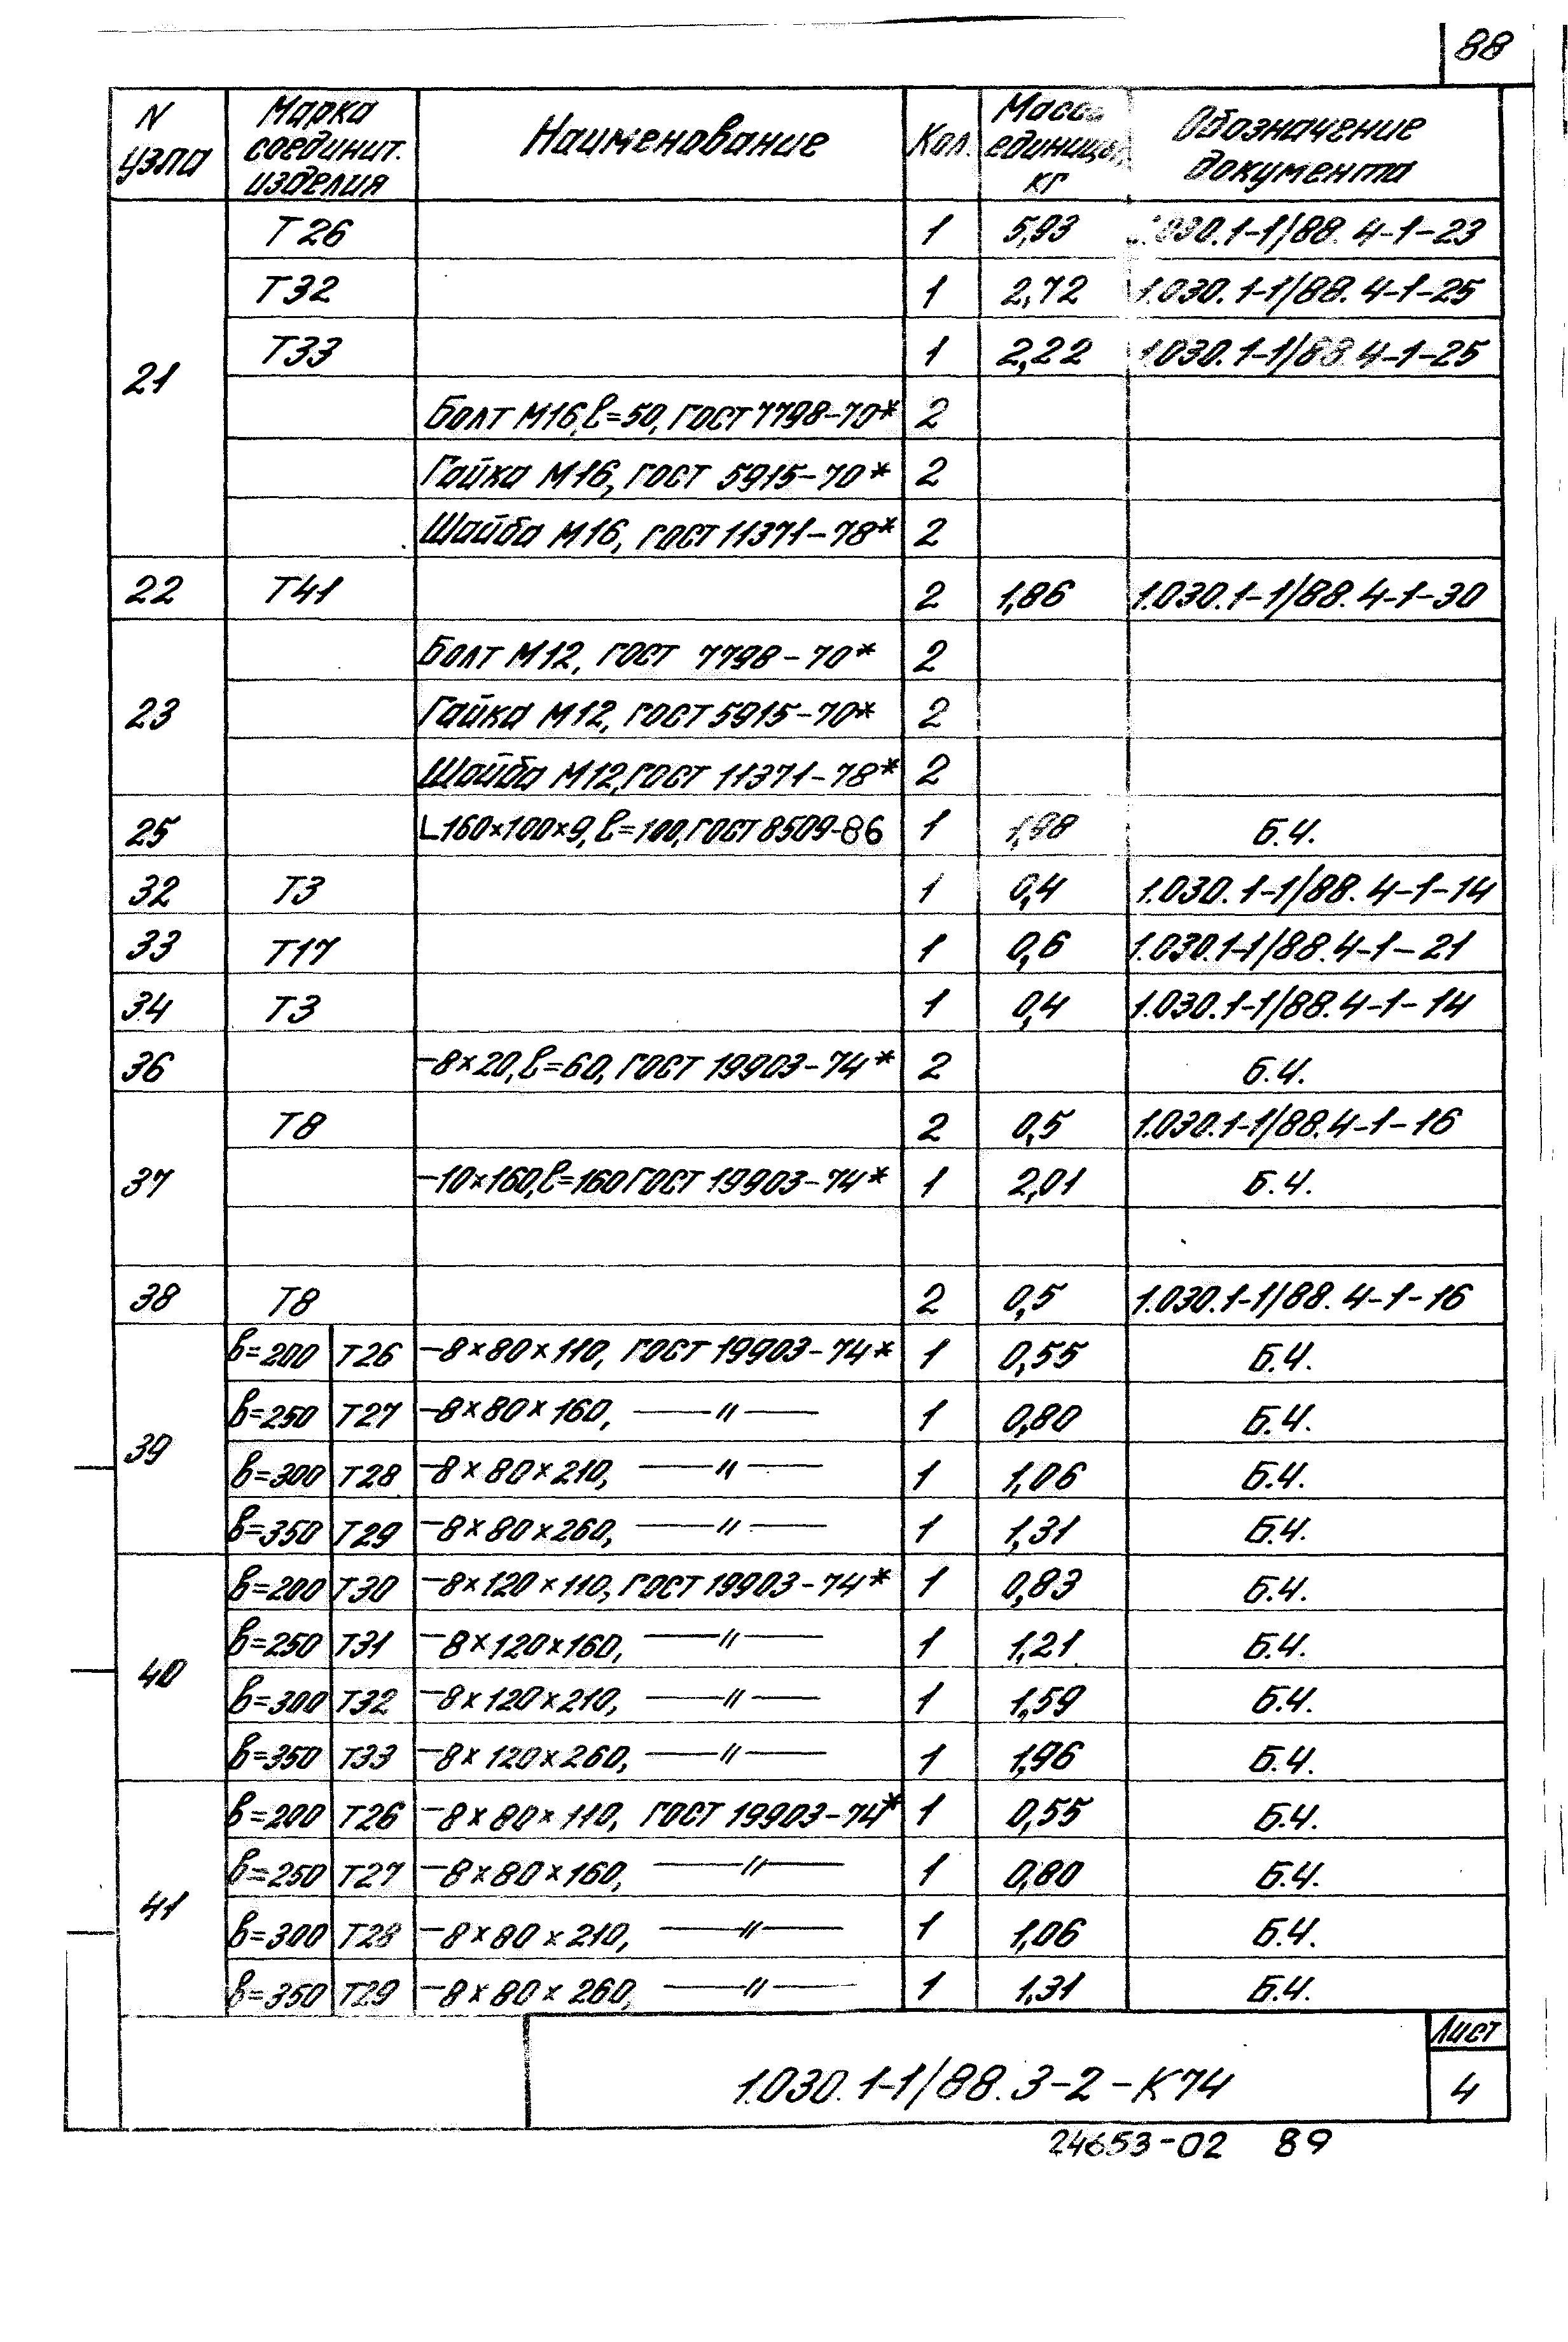 88
N узла Марка соединит. изделия Наименование Кол. Масса единицы, кг Обозначение документа
21 Т26 1 5,93 1.030.1-1/88.4-1-23
Т32 1 2,72 1.030.1-1/88.4-1-25
Т33 1 2,22 1.030.1-1/88.4-1-25
Болт М16, ℓ=50, ГОСТ 7798-70* 2
Гайка М16, ГОСТ 5915-70* 2
Шайба М16, ГОСТ 11371-78* 2
22 Т41 2 1,86 1.030.1-1/88.4-1-30
23 Болт М12, ГОСТ 7798-70* 2
Гайка М12, ГОСТ 5915-70* 2
Шайба М12, ГОСТ 11371-78* 2
25 L160×100×9, ℓ=100, ГОСТ 8509-86 1 Б.Ч.
32 Т3 1 0,4 1.030.1-1/88.4-1-14
33 Т17 1 0,6 1.030.1-1/88.4-1-21
34 Т3 1 0,4 1.030.1-1/88.4-1-14
36 -8×20, ℓ=60, ГОСТ 19903-74* 2 Б.Ч.
37 Т8 2 0,5 1.030.1-1/88.4-1-16
-10×160, ℓ=160 ГОСТ 19903-74* 1 2,01 Б.Ч.
38 Т8 2 0,5 1.030.1-1/88.4-1-16
39 b=200 Т26 -8×80×110, ГОСТ 19903-74* 1 0,55 Б.Ч.
b=250 Т27 -8×80×160, —〃— 1 0,80 Б.Ч.
b=300 Т28 -8×80×210, —〃— 1 1,06 Б.Ч.
b=350 Т29 -8×80×260, —〃— 1 1,31 Б.Ч.
40 b=200 Т30 -8×120×110, ГОСТ 19903-74* 1 0,83 Б.Ч.
b=250 Т31 -8×120×160, —〃— 1 1,21 Б.Ч.
b=300 Т32 -8×120×210, —〃— 1 1,59 Б.Ч.
b=350 Т33 -8×120×260, —〃— 1 1,96 Б.Ч.
41 b=200 Т26 -8×80×110, ГОСТ 19903-74* 1 0,55 Б.Ч.
b=250 Т27 -8×80×160, —〃— 1 0,80 Б.Ч.
b=300 Т28 -8×80×210, —〃— 1 1,06 Б.Ч.
b=350 Т29 -8×80×260, —〃— 1 1,31 Б.Ч.
1.030.1-1/88.3-2-К74
Лист
4
24653-02 89